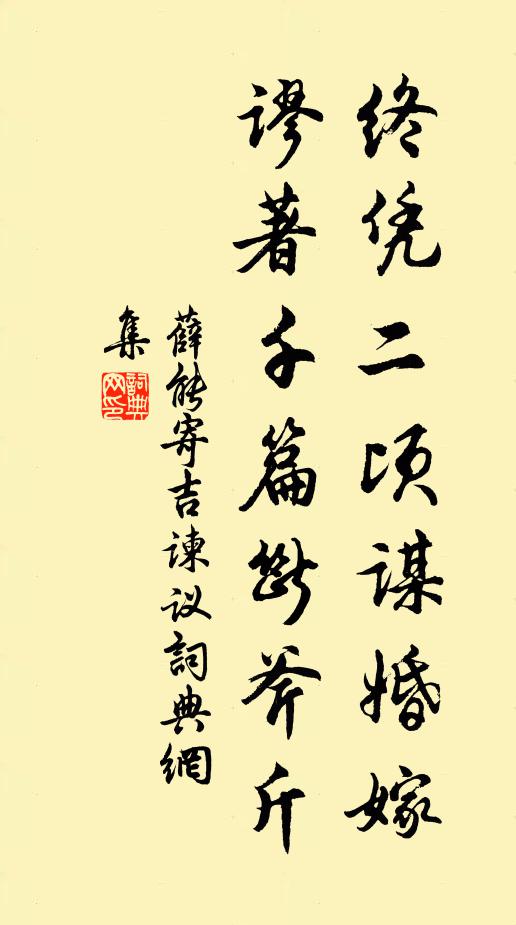 终凭二顷谋婚嫁
谬著千篇断斧斤
薛能寄吉谏议詞典網
集
詞典
网印